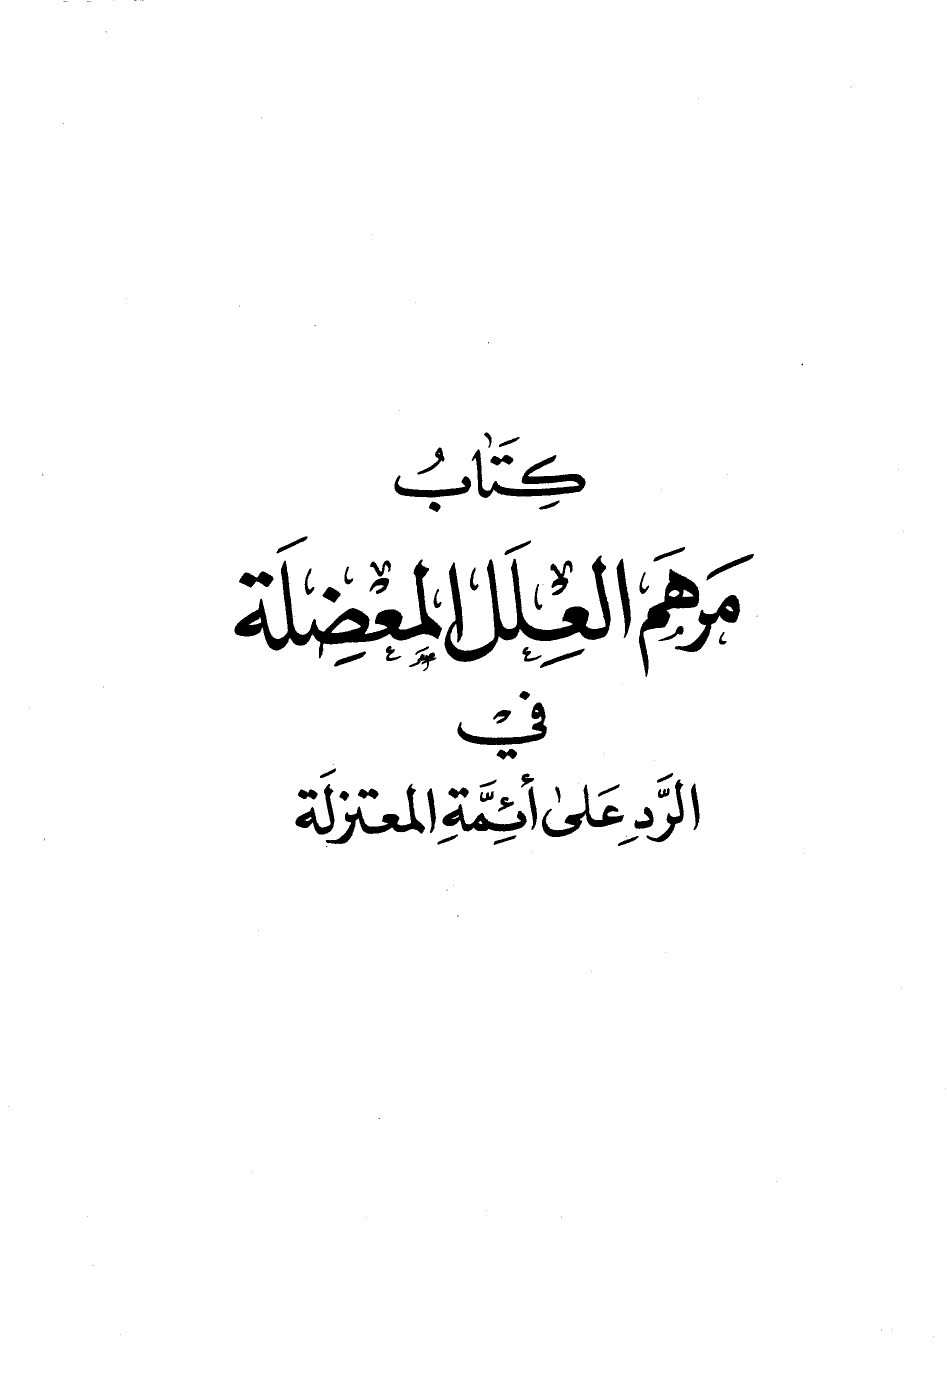 كِتَابُ
مَرْهَم العِلَل المُعْضِلَة
في
الرَّدِ عَلىٰ أئِمَّةِ المعتزلَة